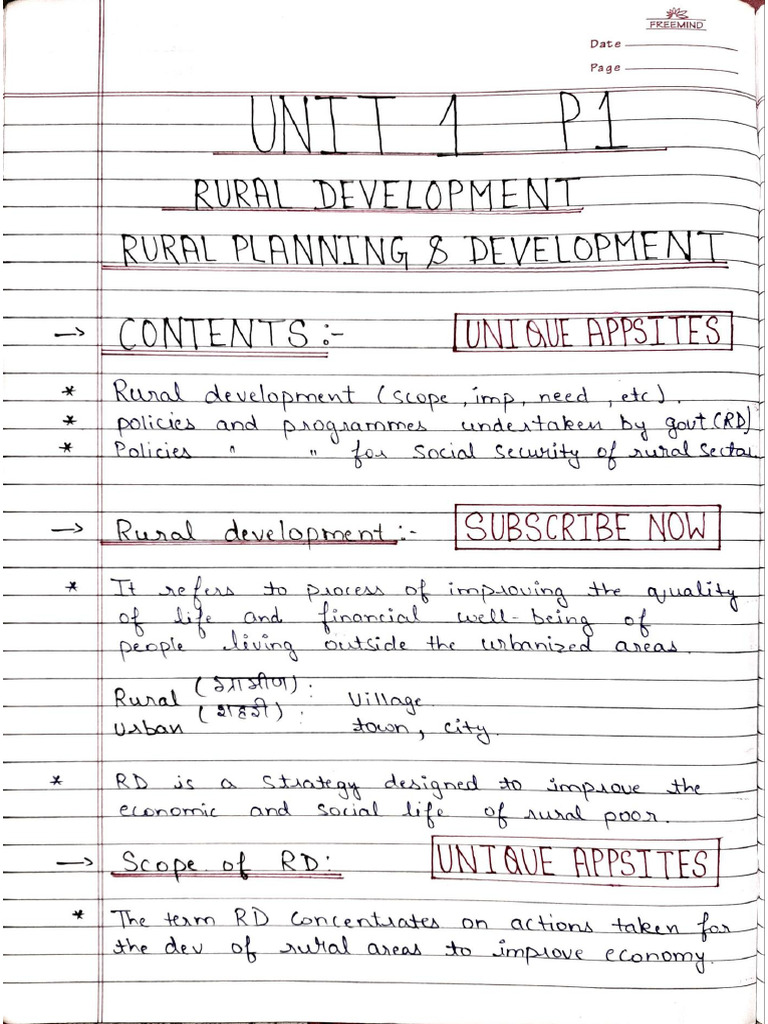 FREEMIND
Date
Page
UNIT 1 P1
RURAL DEVELOPMENT
RURAL PLANNING & DEVELOPMENT
→ CONTENTS :-
UNIQUE APPSITES
* Rural development (scope, imp, need, etc).
* policies and programmes undertaken by govt (RD)
* Policies " " for social security of rural sector
→ Rural development :-
SUBSCRIBE NOW
* It refers to process of improving the quality
of life and financial well-being of
people living outside the urbanized areas.
Rural (ग्रामीण) : Village
Urban (शहरी) : town, city.
* RD is a strategy designed to improve the
economic and social life of rural poor.
→ Scope of RD:
UNIQUE APPSITES
* The term RD concentrates on actions taken for
the dev of rural areas to improve economy.